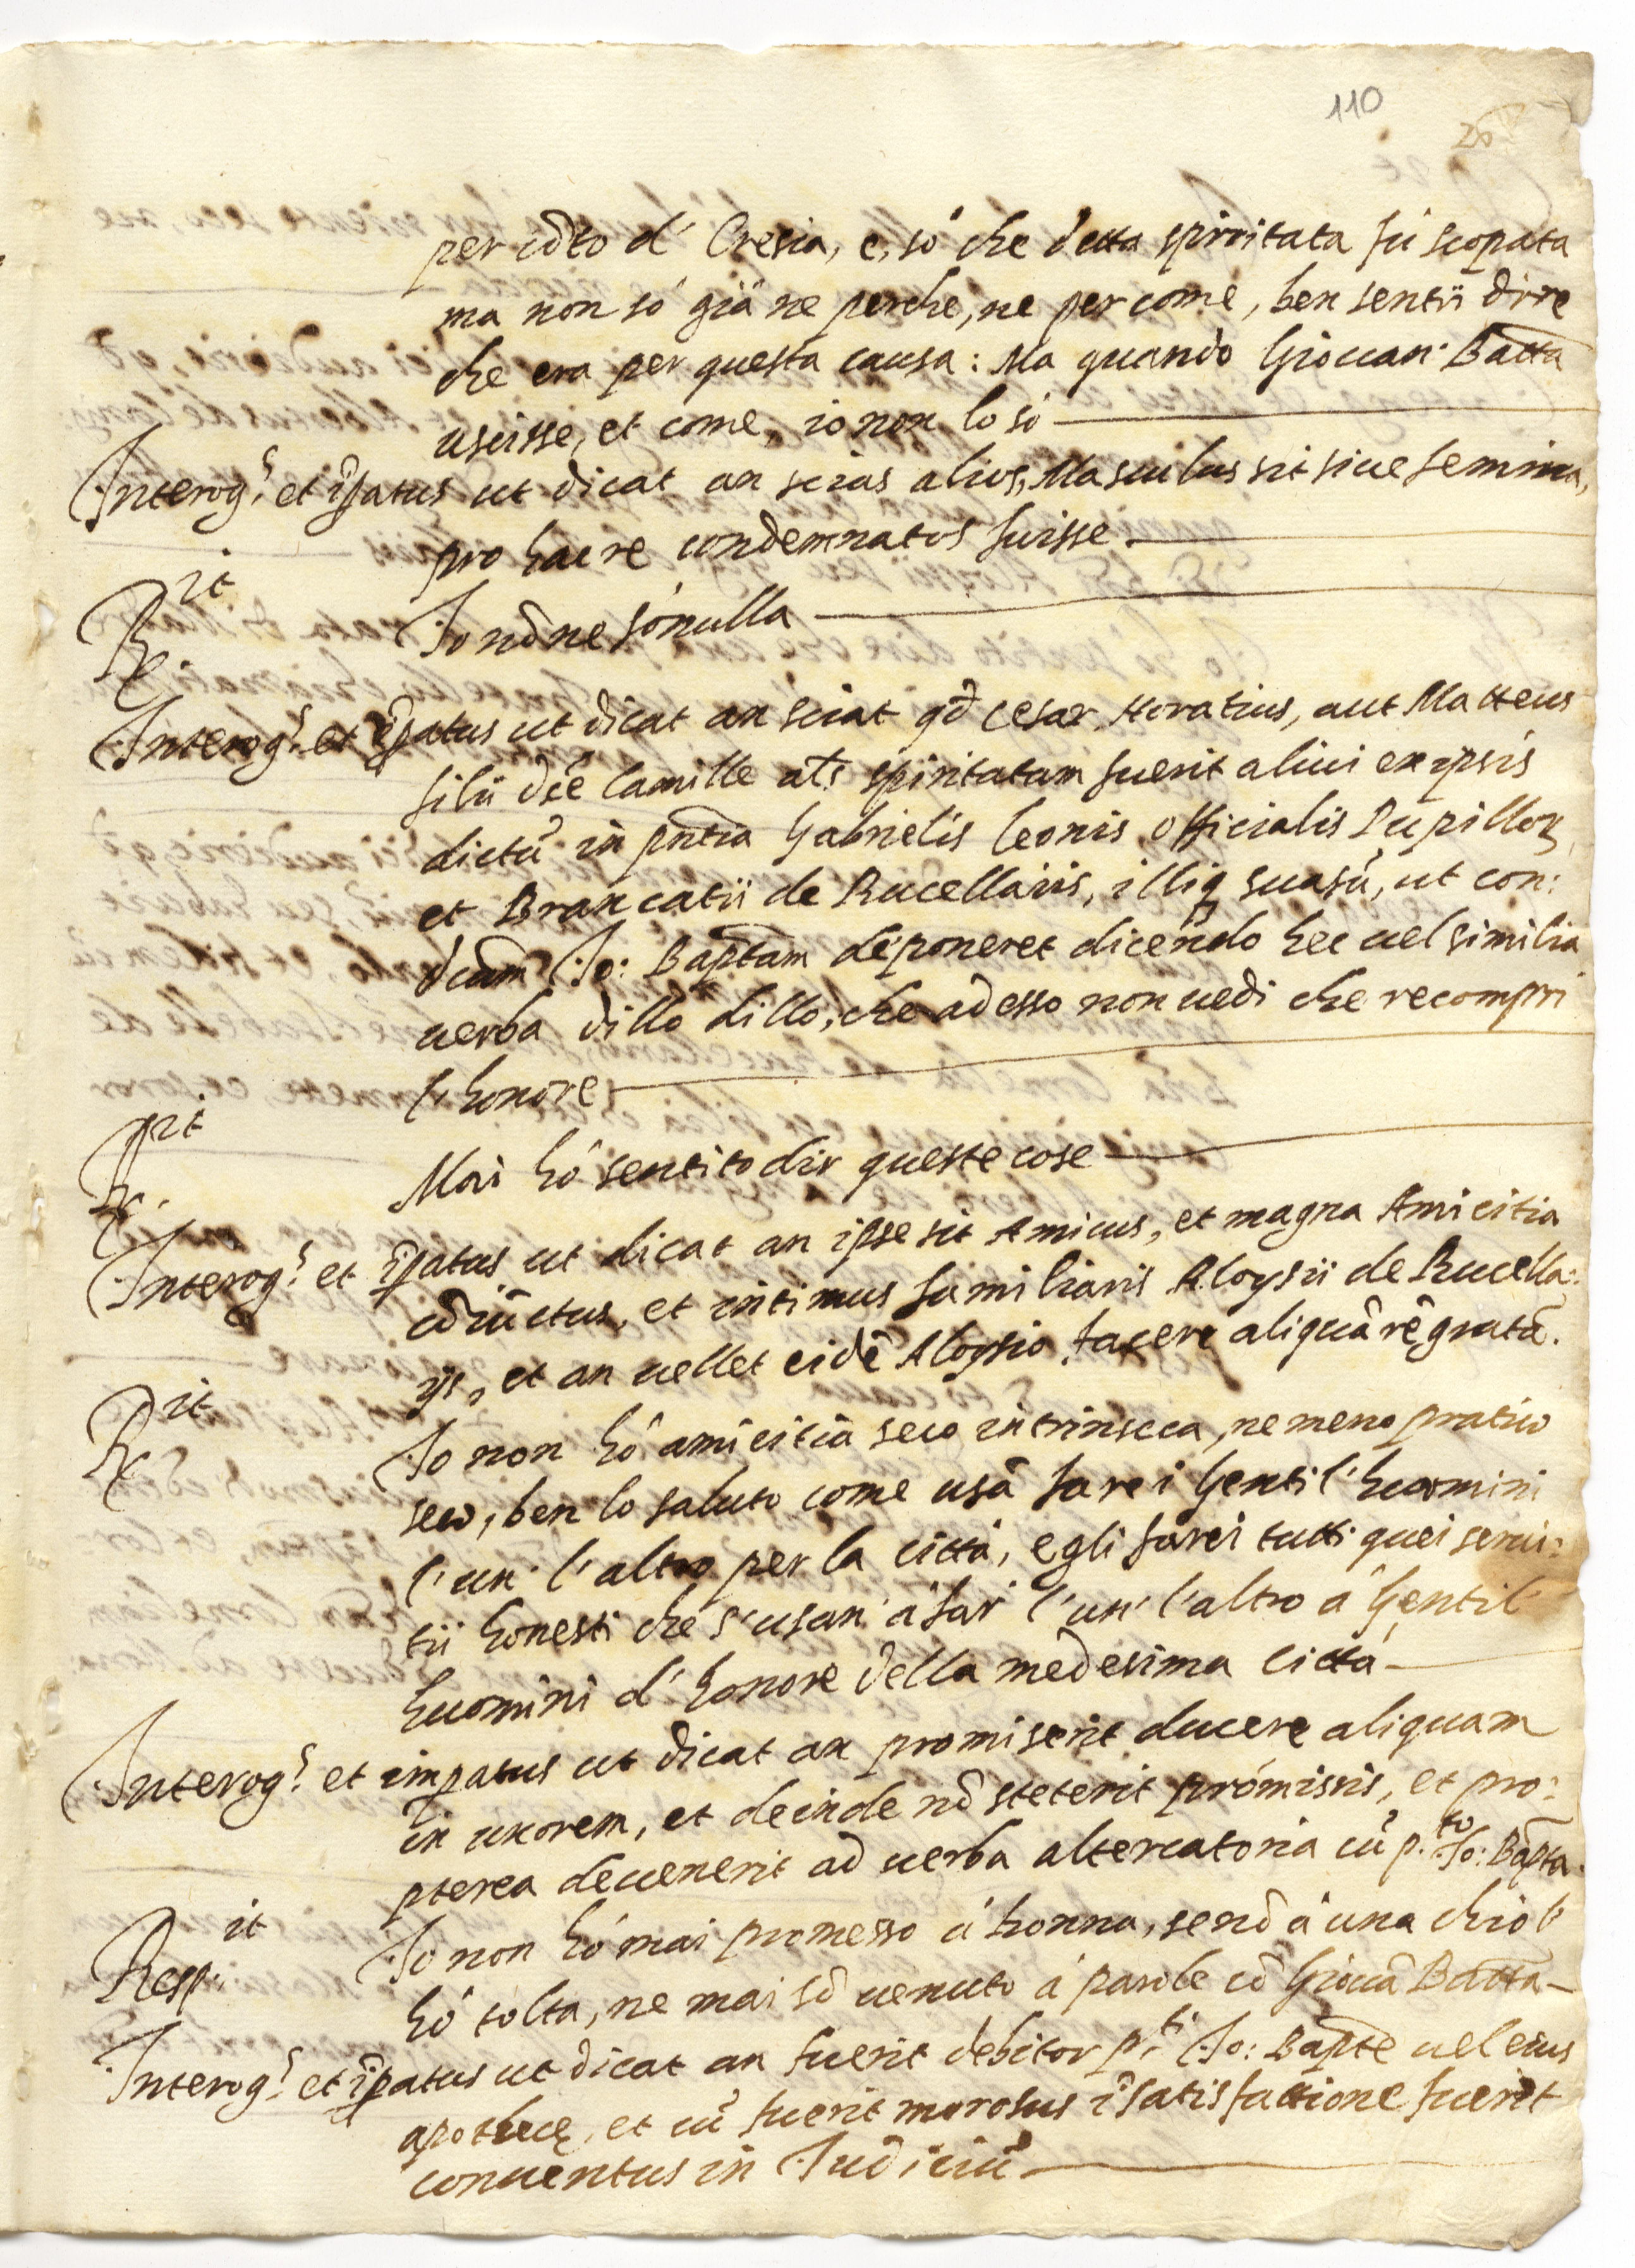 110
26
per cõto d' Cresia, e, sò che detta spiritata fù scopata
ma non sò già ne perche, ne per come, ben sentii dire
che era per questa causa: Ma quando Giouan Batta
uscisse, et come, io non lo sò
Interog.s et iṕatus ut dicat an scias alios, Masculus sit siue femina,
pro hac re condemnatos fuisse.
R.it Io nõ ne sò nulla
Interog.s et iṕatus ut dicat an sciat qd̃ Cesar Horatius, aut Matteus
filii dc̃e Camille als̃ spiritatam fuerit alicui ex ipsis
dictũ in pñtia Gabrielis leonis officialis Pupilloꝝ
et Brancatii de Rucellariis, illiq suasũ, ut con:
dcãm Io: Bapt̃am deponeret dicendo hec uel similia
uerba dillo dillo, che adesso non uedi che recompri
l'honore
R.it Mai hò sentito dir queste cose
Interog.s et iṕatus ut dicat an ipse sit Amicus, et magna Amicitia
cõiũctus, et intimus familiaris Aloysii de Rucella:
ijs, et an uellet eidẽ Aloysio facere aliquã rẽ gratã.
R.it Io non hò amicitia seco intrinseca, ne meno pratico
seco, ben lo saluto come usã fare i Gentil'huomini
l'un' l'altro per la città, e gli farei tutti quei serui:
tii honesti che s'usan' à far l'un' l'altro à Gentil'
huomini d'honore della medesima città
Interog.s et impatus ut dicat an promiserit ducere aliquam
in uxorem, et deinde nõ steterit promissis, et pro:
pterea deuenerit ad uerba altercatoria cũ p.to Io: Bapta.
Resp.it Io non hò mai promesso à honna, senõ à una ch'io l'
hò tolta, ne mai sõ uenuto à parole cõ Giouã Batta
Interog.s et iṕatus ut dicat an fuerit debitor p.ti Io: Bapte uel eius
apothecę, et cũ fuerit morosus ĩ satisfactione fuerit
conuentus in Iudiciũ